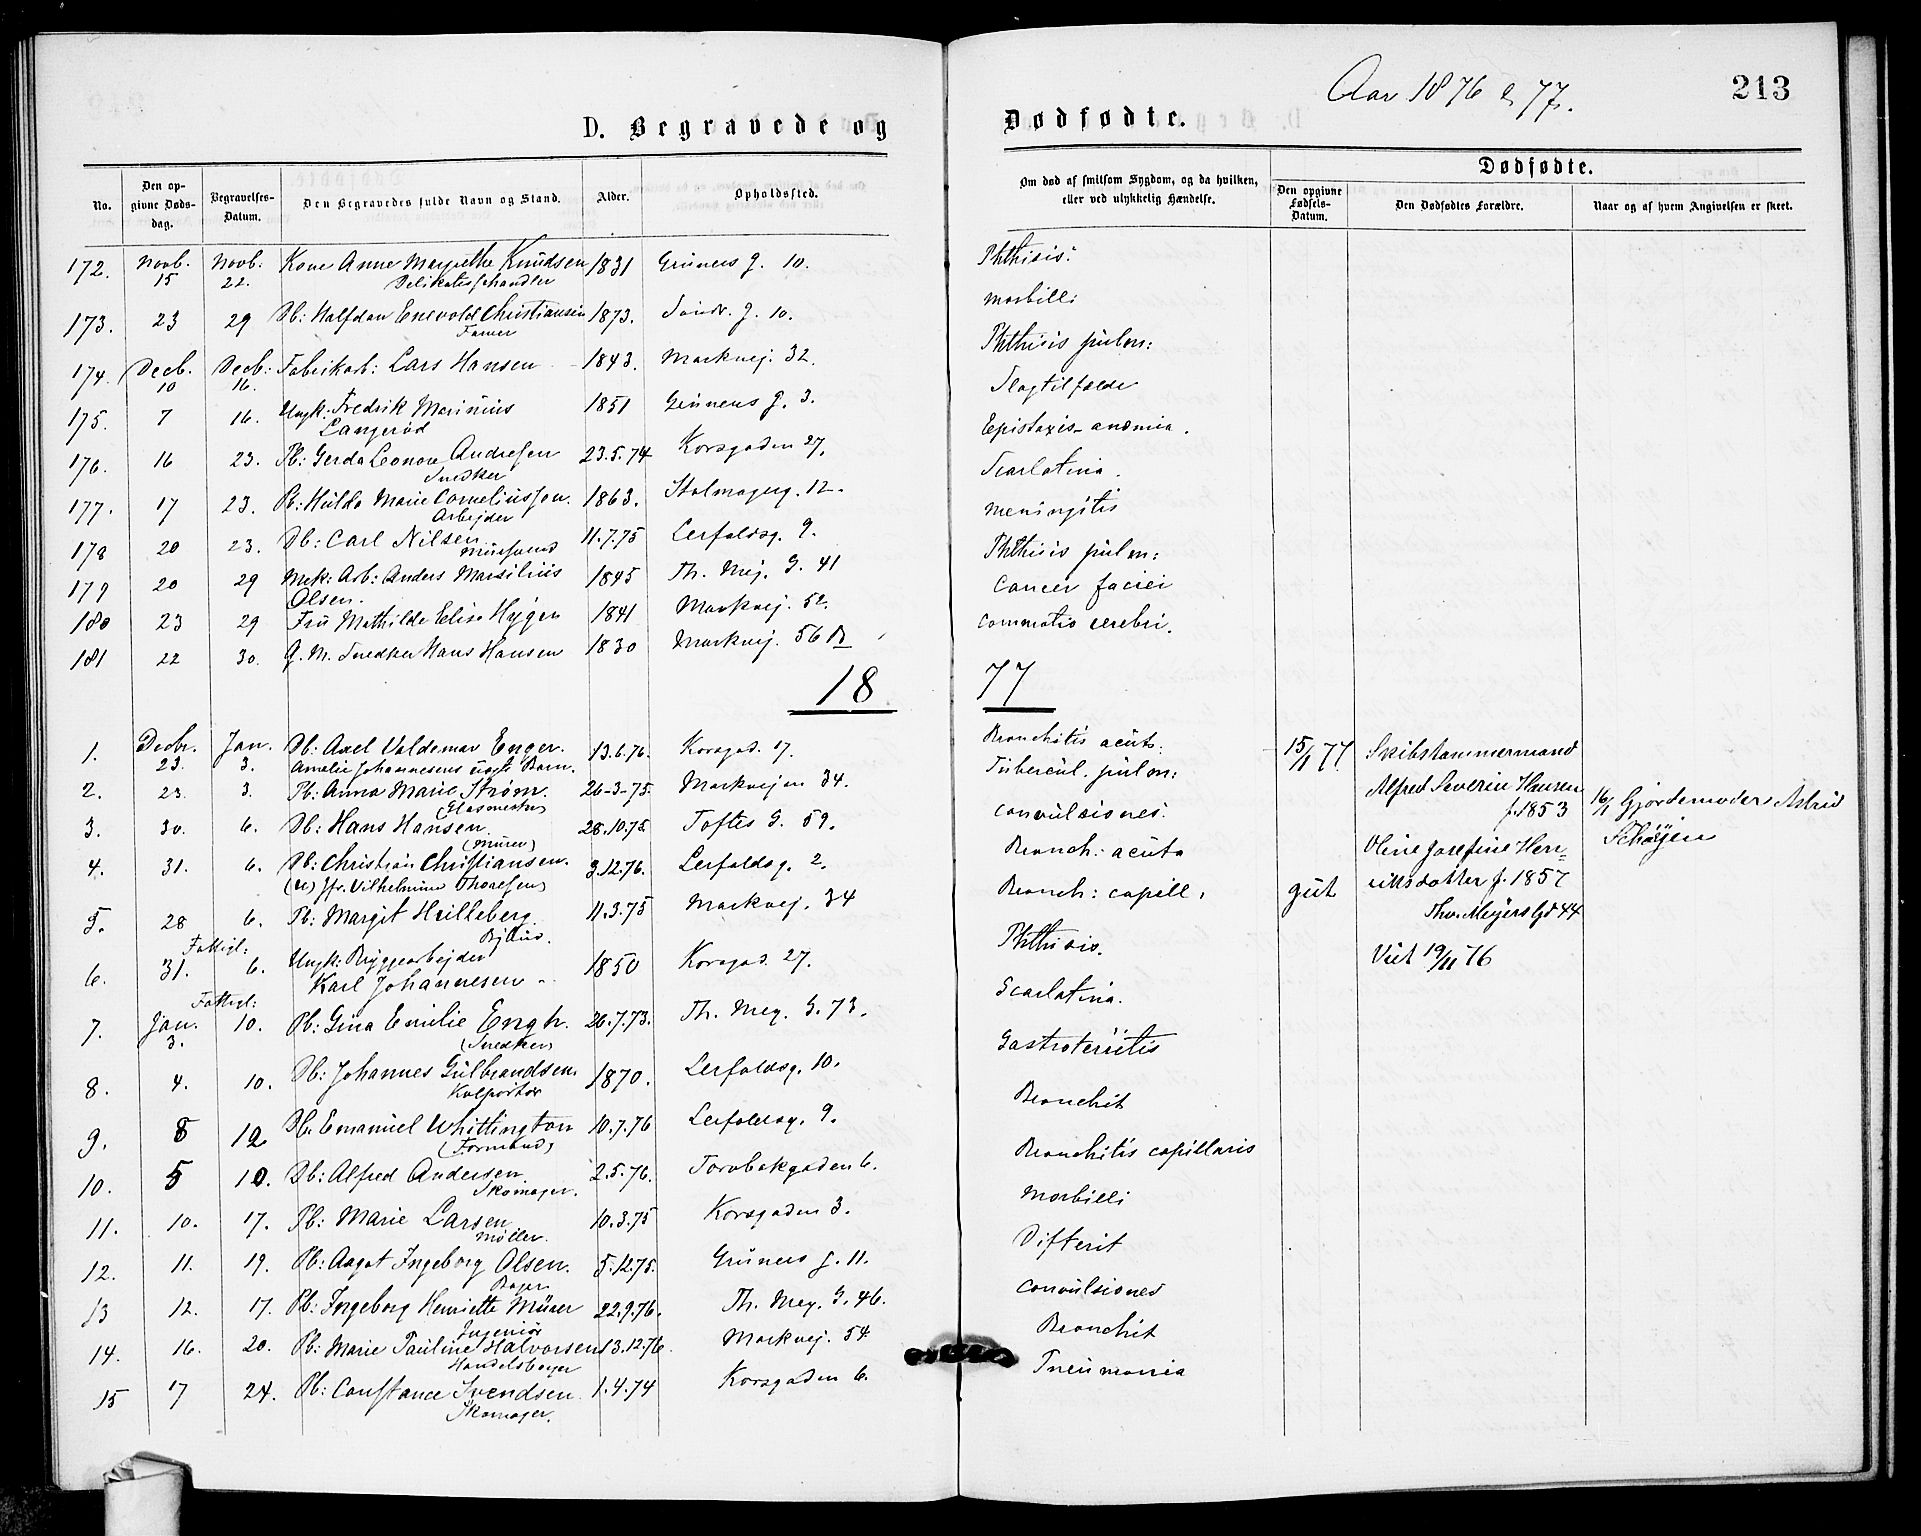 Aar 1876 & 77.
213
D. Begravede og Dødfødte.
No. Den opgivne Dødsdag. Begravelses-Datum. Den Begravedes fulde Navn og Stand. Alder. Opholdssted. Om død af smitsom Sygdom, og da hvilken, eller ved ulykkelig Hændelse. Dødfødte. Den opgivne Fødsels-Datum. Den Dødfødtes Forældre. Naar og af hvem Angivelsen er skeet.
172. Novb. 15 Novb. 22. Kone Anne Margrethe Knudsen 1831 Grüners g. 10. Phthisis.
Delikatessehandler
173. 23 29 Db: Halfdan Enevold Christiansen 1873. Søndr. g. 10. morbilli
Farver
174. Decb. 10 Decb: 16. Fabrikarb: Lars Hansen 1843. Markvej. 32. Phthisis pulm:
175. 7 16. Ungk: Fredrik Marinius 1851 Grüners g. 3. Slagtilfælde
Langerød
176. 16 23. Pb: Gerda Leonore Andresen 23.5.74 Korsgaden 27. Epistaxis-anæmia.
Snedker
177. 17 23. Pb: Hulda Marie Corneliussen. 1863. Stolmagerg. 12. Scarlatina.
Arbejder
178 20 23. Db: Carl Nilsen 11.7.75 Lerfaldsg. 9. meningitis
Mursvend
179 20 29 Mek: Arb: Anders Marsilius 1845 Th. Mej. G. 41 Phthisis pulm:
Olsen.
180 23 29 Fru Mathilde Elise Hygen 1841 Markvej. 52. Cancer faciei
181 22 30. G. M. Snedker Hans Hansen 1830 Markvej. 56 B commotio cerebri.
18 77
1. Decbr. 23. Jan. 3. Db: Axel Valdemar Enger. 13.6.76. Korsgad. 17. Bronchitis acut:
Amelie Johannesens uægte Barn.
2. 23 3. Pb: Anna Marie Strøm. 26-3-75. Markvejen 34. Tubercul. pulm:
(Glasmester)
3. 30. 6. Db: Hans Hansen 28.10.75. Toftes G. 59. convulsiones.
(Murer)
4. 31. 6. Db: Christian Christiansen. 3.12.76. Lerfaldsg. 2. Bronch: acuta
(u) Jfr. Vilhelmine Thoresen
5. 28 6. Pb: Margit Hilleberg 11.3.75 Markvej. 34 Bronch: capill.
6. Fattigl: 31. 6. Ungk: Bryggearbejder 1850 Korsgad. 27. Phthisis.
Karl Johannesen
7. Fattigl: Jan. 3. 10. Pb: Gina Emilie Engh. 26.7.73. Th. Mey. G. 73. Scarlatina.
(Snedker)
8. 4. 10. Db: Johannes Gulbrandsen 1870. Lerfaldsg. 10. Gastroteritis
Kolportør
9. 8 12 Db. Emanuel Whittington 10.7.76 Lerfaldsg. 9. Bronchit
(Formand)
10. 5 10. Db: Alfred Andersen 2.5.76. Torvbakgaden 6. Bronchitis capillaris
Skomager.
11. 10. 17. Pb: Marie Larsen 10.3.75 Korsgaden 3. Morbilli
Møller.
12. 11. 19. Pb: Aagot Ingeborg Olsen. 5.12.75. Grüners g. 11. Difterit
Bager
13 12. 17. Pb: Ingeborg Henriette Mürer 22.9.76. Th. Mey. G. 46. convulsiones
Ingeniør
14. 16. 20. Pb: Marie Pauline Halvorsen 13.12.76. Markvej. 54 Bronchit
Handelsborger
15 17 24. Pb: Constance Svendsen 1.4.74 Korsgaden 6. Pneumonia
Skomager.
15/1 77 Skibstømmermand
Alfred Severin Hansen
f. 1853
Oline Josefine Hen=
riksdatter f. 1857
Thv. Meyers Gd 44
Viet 19/11 76
gut
16/1 Gjordemoder Astrid
Schøyen